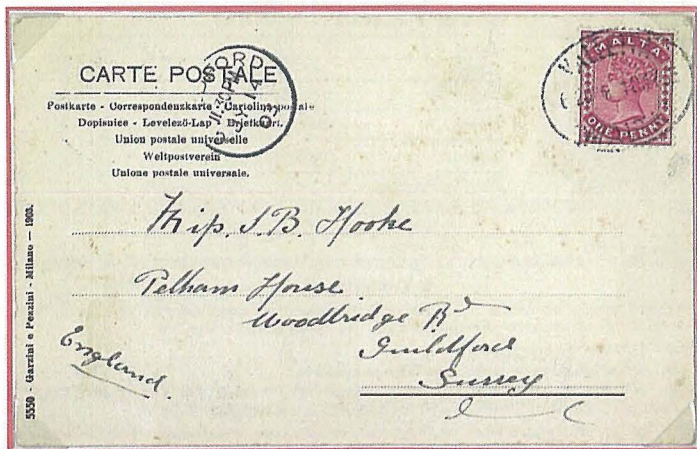 CARTE POSTALE
Postkarte - Correspondenzkarte - Cartolina postale
Dopisnice - Levelező-Lap - Briefkaart.
Union postale universelle
Weltpostverein
Unione postale universale.
MALTA
ONE PENNY
VALLETTA
11.30PM
JY 14
03
Miss. S. B. Hooke
Pelham House
Woodbridge Rd
Guildford
Surrey
England.
5550 - Garzini e Pezzini - Milano - 1903.